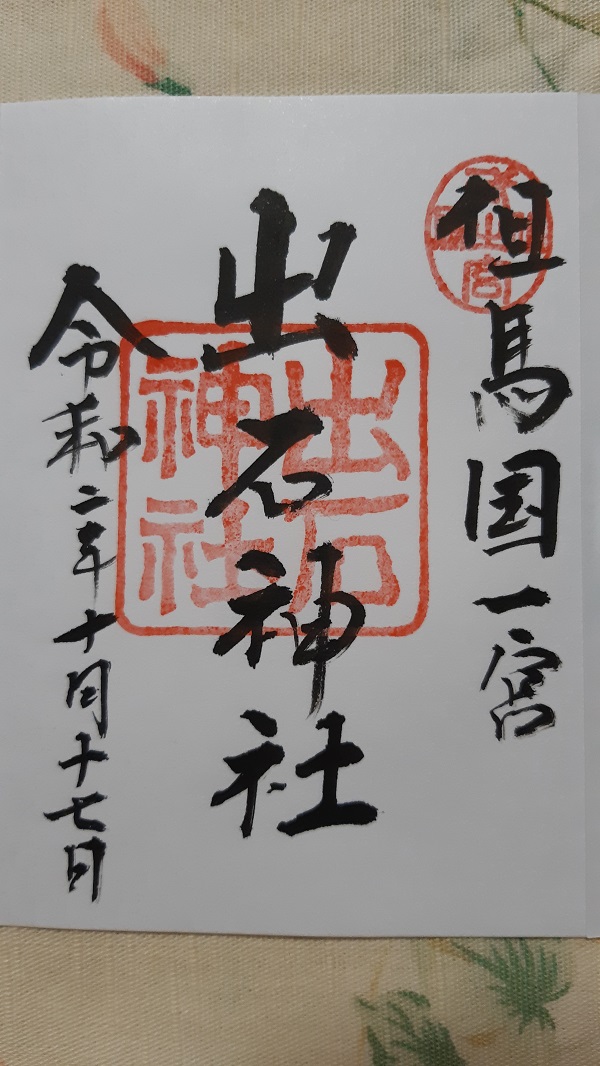 但馬国一宮
出石神社
出石神社
令和二年十月十七日